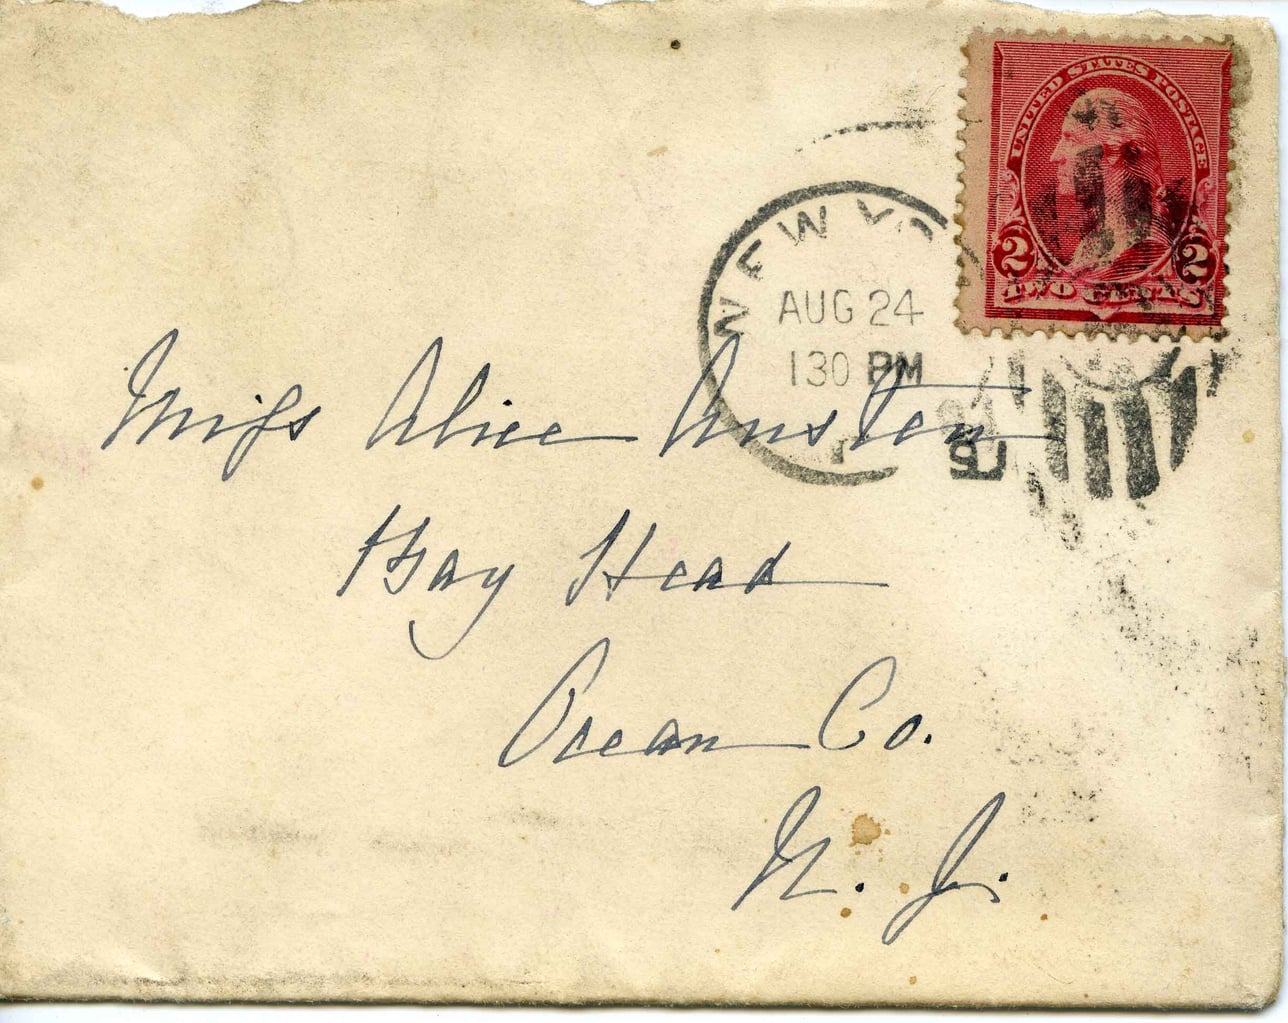 UNITED STATES POSTAGE
2 2
TWO CENTS
NEW YO
AUG 24
130 PM
Miss Alice Austen
Bay Head
Ocean Co.
N. J.